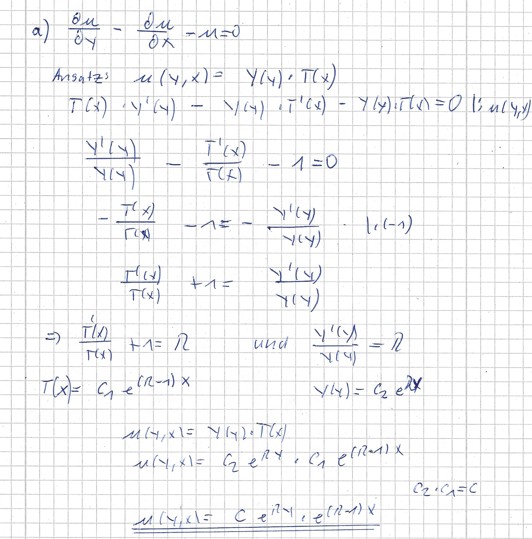 a) ∂u/∂y - ∂u/∂x - u=0
Ansatz: u(y,x) = Y(y) · T(x)
T(x) · Y'(y) - Y(y) · T'(x) - Y(y)·T(x) = 0 |: u(y,x)
Y'(y)/Y(y) - T'(x)/T(x) - 1=0
- T'(x)/T(x) - 1 = - Y'(y)/Y(y) |·(-1)
T'(x)/T(x) + 1 = Y'(y)/Y(y)
⇒ T'(x)/T(x) + 1 = λ und Y'(y)/Y(y) = λ
T(x) = c₁ e^((λ-1)x) Y(y) = c₂ e^(λy)
u(y,x) = Y(y)·T(x)
u(y,x) = c₂ e^(λy) · c₁ e^((λ-1)x)
c₂·c₁=c
u(y,x) = c e^(λy) · e^((λ-1)x)